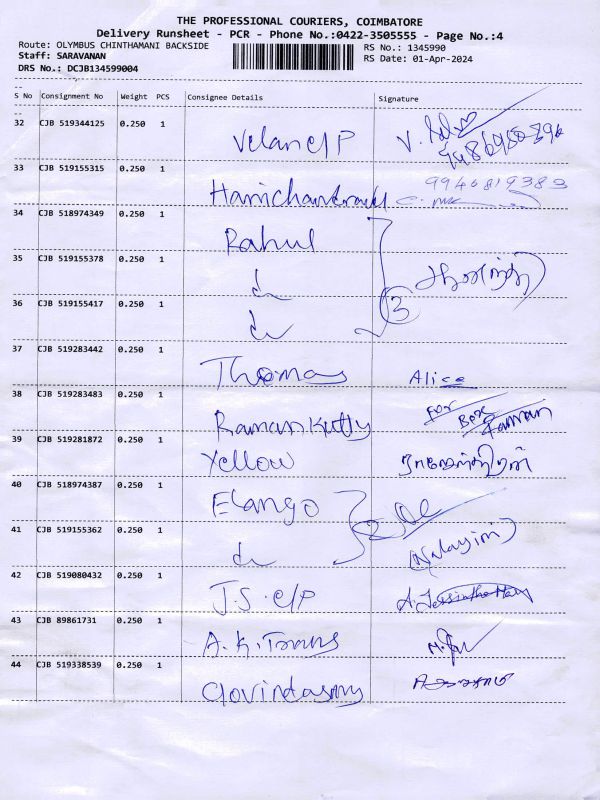 THE PROFESSIONAL COURIERS, COIMBATORE
Delivery Runsheet - PCR - Phone No.:0422-3505555 - Page No.:4
Route: OLYMBUS CHINTHAMANI BACKSIDE
RS No.: 1345990
Staff: SARAVANAN
RS Date: 01-Apr-2024
DRS No.: DCJB134599004
S No Consignment No Weight PCS Consignee Details Signature
32 CJB 519344125 0.250 1 Velan C/P V.
33 CJB 519155315 0.250 1 9940819383
34 CJB 518974349 0.250 1 Rahul
35 CJB 519155378 0.250 1
36 CJB 519155417 0.250 1 3
37 CJB 519283442 0.250 1 Thomas Alice
38 CJB 519283483 0.250 1 Raman Kutty For
39 CJB 519281872 0.250 1 Yellow
40 CJB 518974387 0.250 1 Elango 2
41 CJB 519155362 0.250 1
42 CJB 519080432 0.250 1 J.S. C/P
43 CJB 89861731 0.250 1 A.K.
44 CJB 519338539 0.250 1 Govindasamy